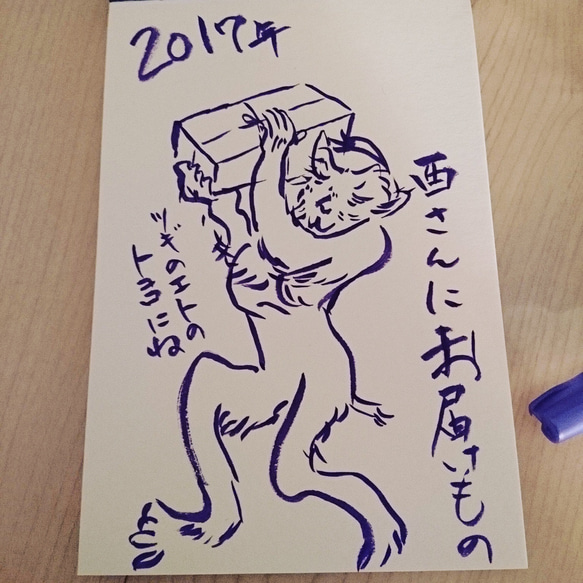 2017年
酉さんにお届けもの
ツギのエトの
トヨにね